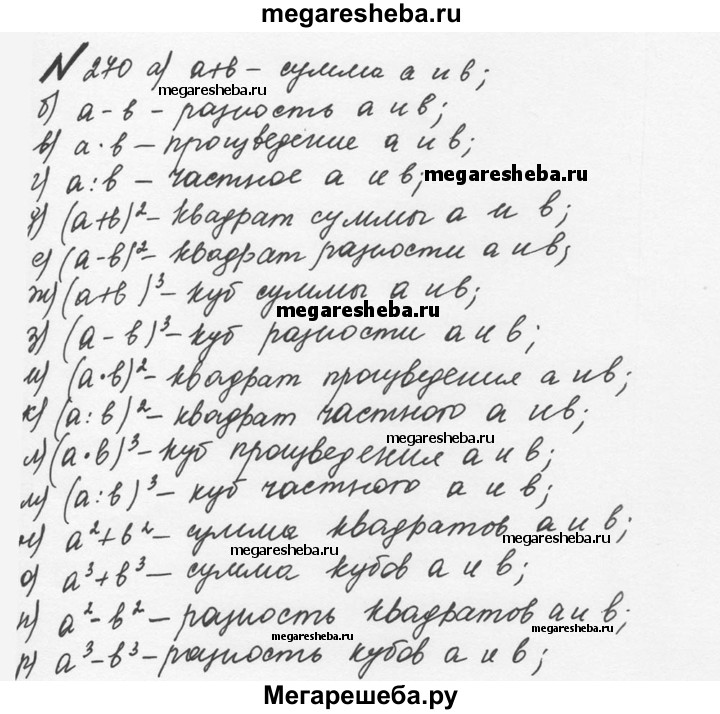 megaresheba.ru
№ 270 а) а+в – сумма а и в;
megaresheba.ru
б) а - в - разность а и в;
в) а · в – произведение а и в;
г) а : в – частное а и в; megaresheba.ru
д) (а+в)² - квадрат суммы а и в;
е) (а-в)² - квадрат разности а и в;
ж) (а+в)³ - куб суммы а и в;
megaresheba.ru
з) (а - в)³ - куб разности а и в;
и) (а·в)² - квадрат произведения а и в;
к) (а:в)² - квадрат частного а и в;
megaresheba.ru
л) (а·в)³ - куб произведения а и в;
м) (а:в)³ - куб частного а и в;
н) а²+в² - сумма квадратов а и в;
megaresheba.ru megaresheba.ru
о) а³+в³ – сумма кубов а и в;
п) а²-в² – разность квадратов а и в;
megaresheba.ru megaresheba.ru
р) а³-в³ - разность кубов а и в;
Мегарешеба.ру